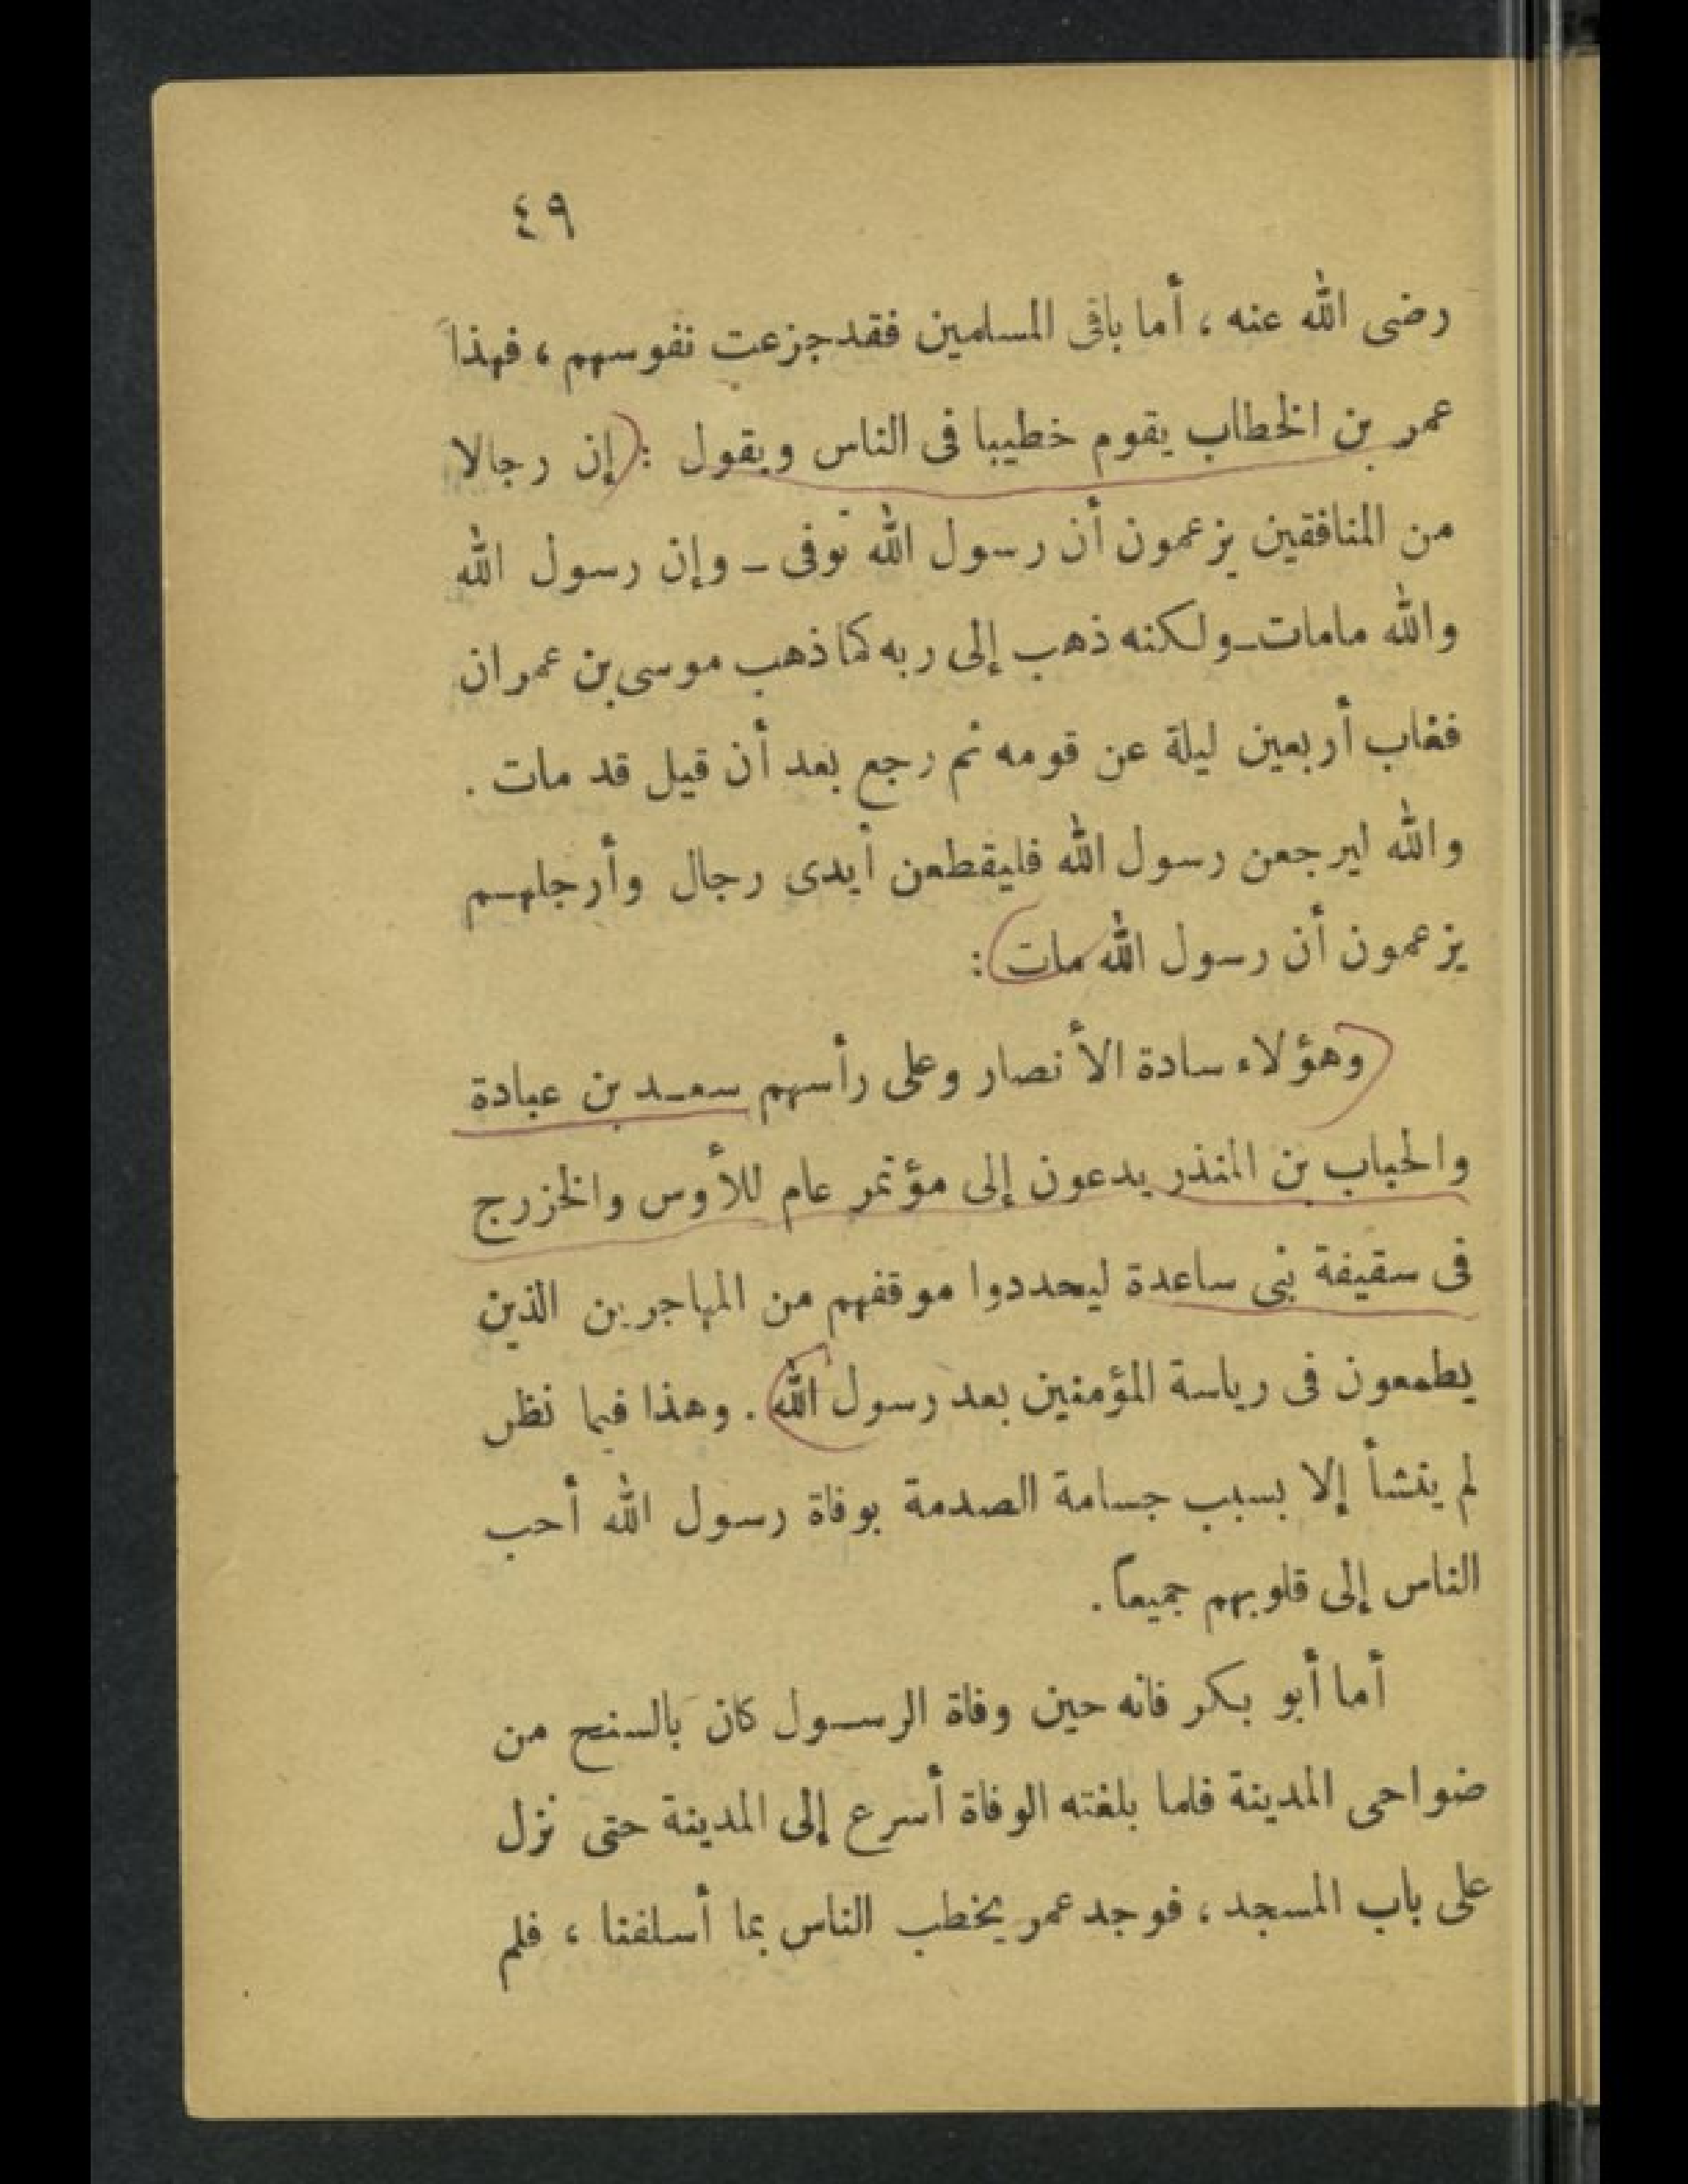 ٤٩
رضى الله عنه ، أما باقى المسلمين فقد جزعت نفوسهم ، فهذا
عمر بن الخطاب يقوم خطيبا فى الناس ويقول : إن رجالا
من المنافقين يزعمون أن رسول الله توفى ـ وإن رسول الله
والله مامات ـ ولكنه ذهب إلى ربه كما ذهب موسى بن عمران
فغاب أربعين ليلة عن قومه ثم رجع بعد أن قيل قد مات .
والله ليرجعن رسول الله فليقطعن أيدى رجال وأرجلهم
يزعمون أن رسول الله مات :
وهؤلاء سادة الأنصار وعلى رأسهم سعد بن عبادة
والحباب بن المنذر يدعون إلى مؤتمر عام للأوس والخزرج
فى سقيفة بنى ساعدة ليحددوا موقفهم من المهاجرين الذين
يطمعون فى رياسة المؤمنين بعد رسول الله . وهذا فيما نظن
لم ينشأ إلا بسبب جسامة الصدمة بوفاة رسول الله أحب
الناس إلى قلوبهم جميعاً .
أما أبو بكر فانه حين وفاة الرسول كان بالسنح من
ضواحى المدينة فلما بلغته الوفاة أسرع إلى المدينة حتى نزل
على باب المسجد ، فوجد عمر يخطب الناس بما أسلفنا ، فلم